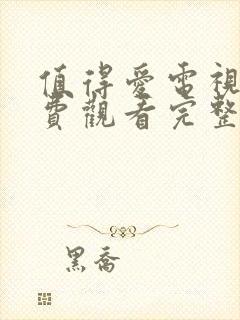 值得愛電視
費觀看完整
黑喬